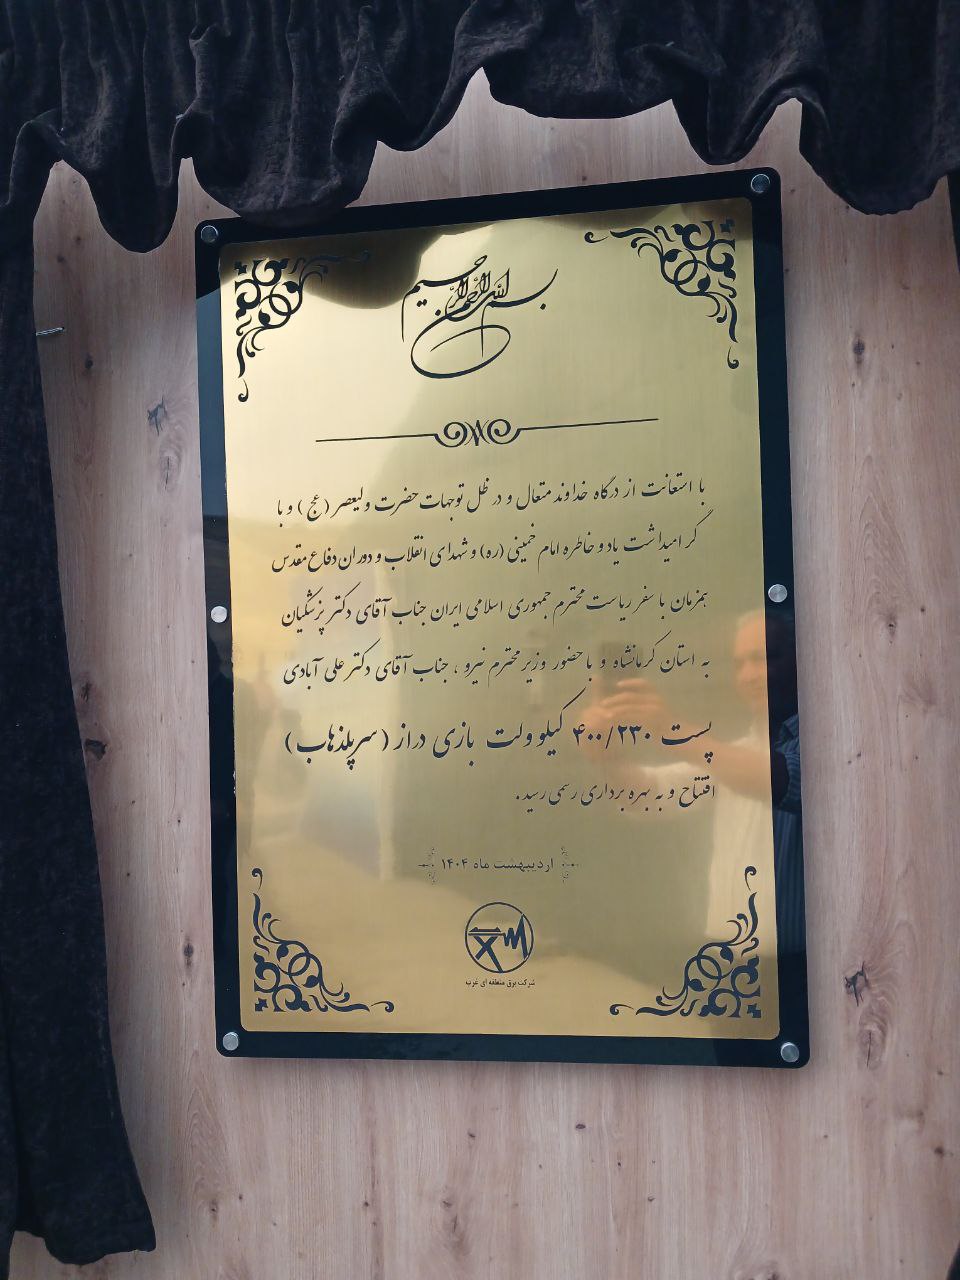 بسم الله الرحمن الرحیم
با استعانت از درگاه خداوند متعال و در ظل توجهات حضرت ولیعصر (عج) و با
گرامیداشت یاد و خاطره امام خمینی (ره) و شهدای انقلاب و دوران دفاع مقدس
همزمان با سفر ریاست محترم جمهوری اسلامی ایران جناب آقای دکتر پزشکیان
به استان کرمانشاه و با حضور وزیر محترم نیرو ، جناب آقای دکتر علی آبادی
پست ۴۰۰/۲۳۰ کیلو ولت بازی دراز (سرپلذهاب)
افتتاح و به بهره برداری رسمی رسید.
اردیبهشت ماه ۱۴۰۴
شرکت برق منطقه ای غرب